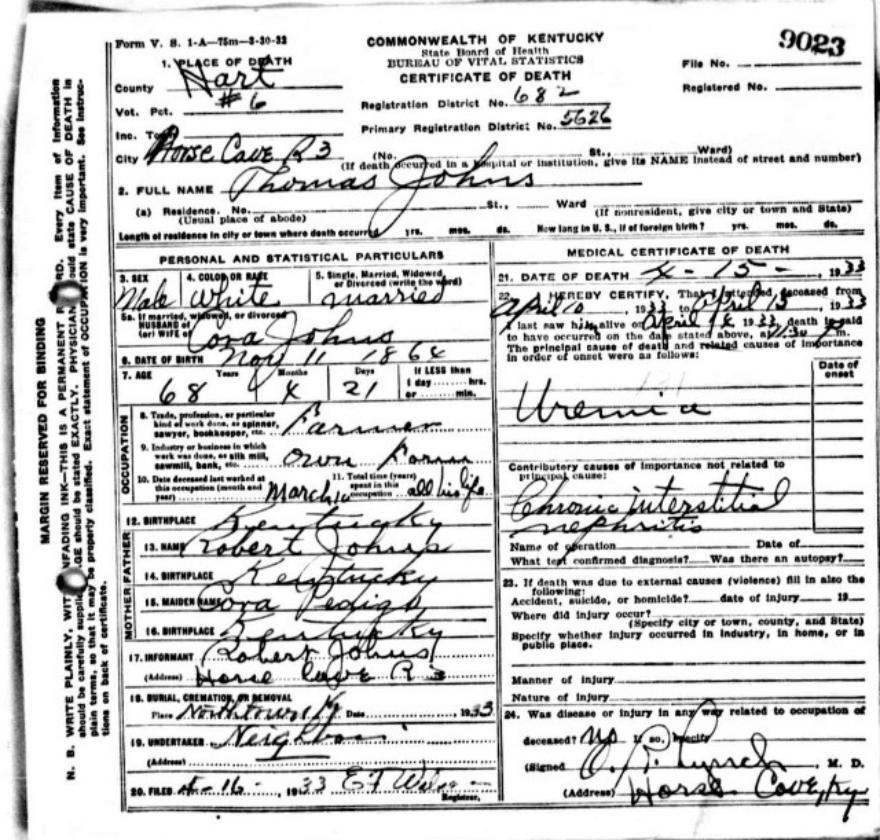 Form V. S. 1-A—75m—3-30-32
COMMONWEALTH OF KENTUCKY
State Board of Health
BUREAU OF VITAL STATISTICS
CERTIFICATE OF DEATH
9023
File No.
Registered No.
1. PLACE OF DEATH
County Hart
Vot. Pct. #6
Inc. Town
City Horse Cave R 3
Registration District No. 682
Primary Registration District No. 5626
(No. St., Ward)
(If death occurred in a hospital or institution, give its NAME instead of street and number)
2. FULL NAME Thomas Johns
(a) Residence. No. St., Ward
(Usual place of abode) (If nonresident, give city or town and State)
Length of residence in city or town where death occurred yrs. mos. ds. How long in U. S., if of foreign birth? yrs. mos. ds.
PERSONAL AND STATISTICAL PARTICULARS
3. SEX Male
4. COLOR OR RACE White
5. Single, Married, Widowed, or Divorced (write the word) married
5a. If married, widowed, or divorced
HUSBAND of
(or) WIFE of Cora Johns
6. DATE OF BIRTH Nov 11 1864
7. AGE 68 Years 4 Months 21 Days If LESS than
1 day hrs.
or min.
OCCUPATION
8. Trade, profession, or particular
kind of work done, as spinner,
sawyer, bookkeeper, etc. Farmer
9. Industry or business in which
work was done, as silk mill,
sawmill, bank, etc. Own Farm
10. Date deceased last worked at
this occupation (month and
year) March
11. Total time (years)
spent in this
occupation all his life
12. BIRTHPLACE Kentucky
FATHER
13. NAME Robert Johns
14. BIRTHPLACE Kentucky
MOTHER
15. MAIDEN NAME Cora Pedigo
16. BIRTHPLACE Kentucky
17. INFORMANT Robert Johns
(Address) Horse Cave R 3
18. BURIAL, CREMATION, OR REMOVAL
Place Northtown Ky Date 1933
19. UNDERTAKER Neighbors
(Address)
20. FILED 4-16- 1933 E T
Registrar.
MEDICAL CERTIFICATE OF DEATH
21. DATE OF DEATH 4-15-, 1933
22. I HEREBY CERTIFY, That I attended deceased from
April 10, 1933 to April 15, 1933
I last saw him alive on April 1933, death is said
to have occurred on the date stated above, at m.
The principal cause of death and related causes of importance
in order of onset were as follows:
Date of
onset
Uremia
Contributory causes of importance not related to
principal cause:
Chronic interstitial
nephritis
Name of operation Date of
What test confirmed diagnosis? Was there an autopsy?
23. If death was due to external causes (violence) fill in also the
following:
Accident, suicide, or homicide? date of injury 19
Where did injury occur?
(Specify city or town, county, and State)
Specify whether injury occurred in industry, in home, or in
public place.
Manner of injury
Nature of injury
24. Was disease or injury in any way related to occupation of
deceased? no If so, specify
(Signed) M. D.
(Address) Horse Cave, Ky
MARGIN RESERVED FOR BINDING
N. B. WRITE PLAINLY, WITH UNFADING INK—THIS IS A PERMANENT RECORD. Every item of information
should be carefully supplied. AGE should be stated EXACTLY. PHYSICIANS should state CAUSE OF DEATH in
plain terms, so that it may be properly classified. Exact statement of OCCUPATION is very important. See instruc-
tions on back of certificate.